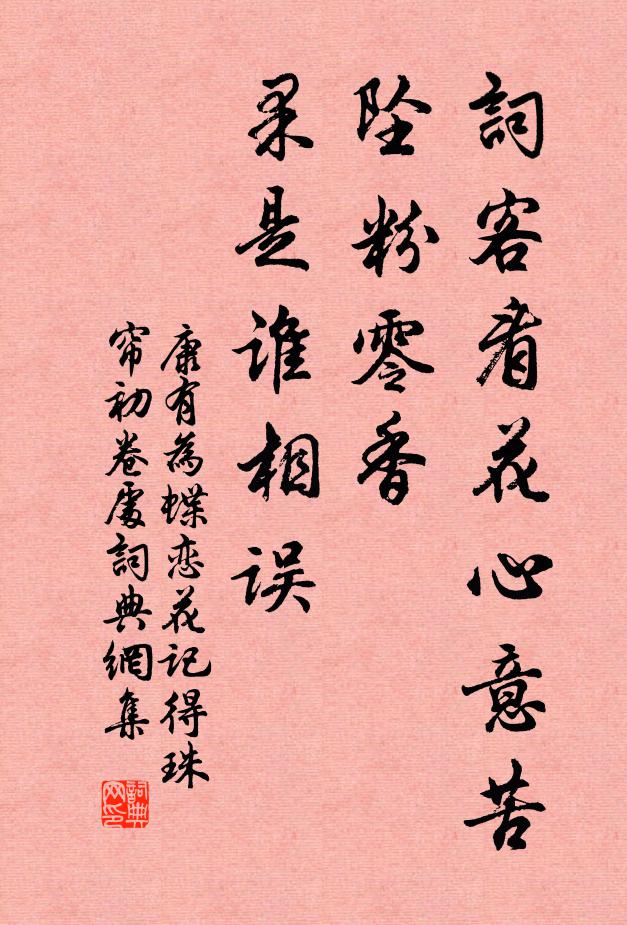 詞客看花心意苦
坠粉零香
果是谁相误
康有為蝶恋花記得珠
帘初卷處詞典網集
詞典
网印